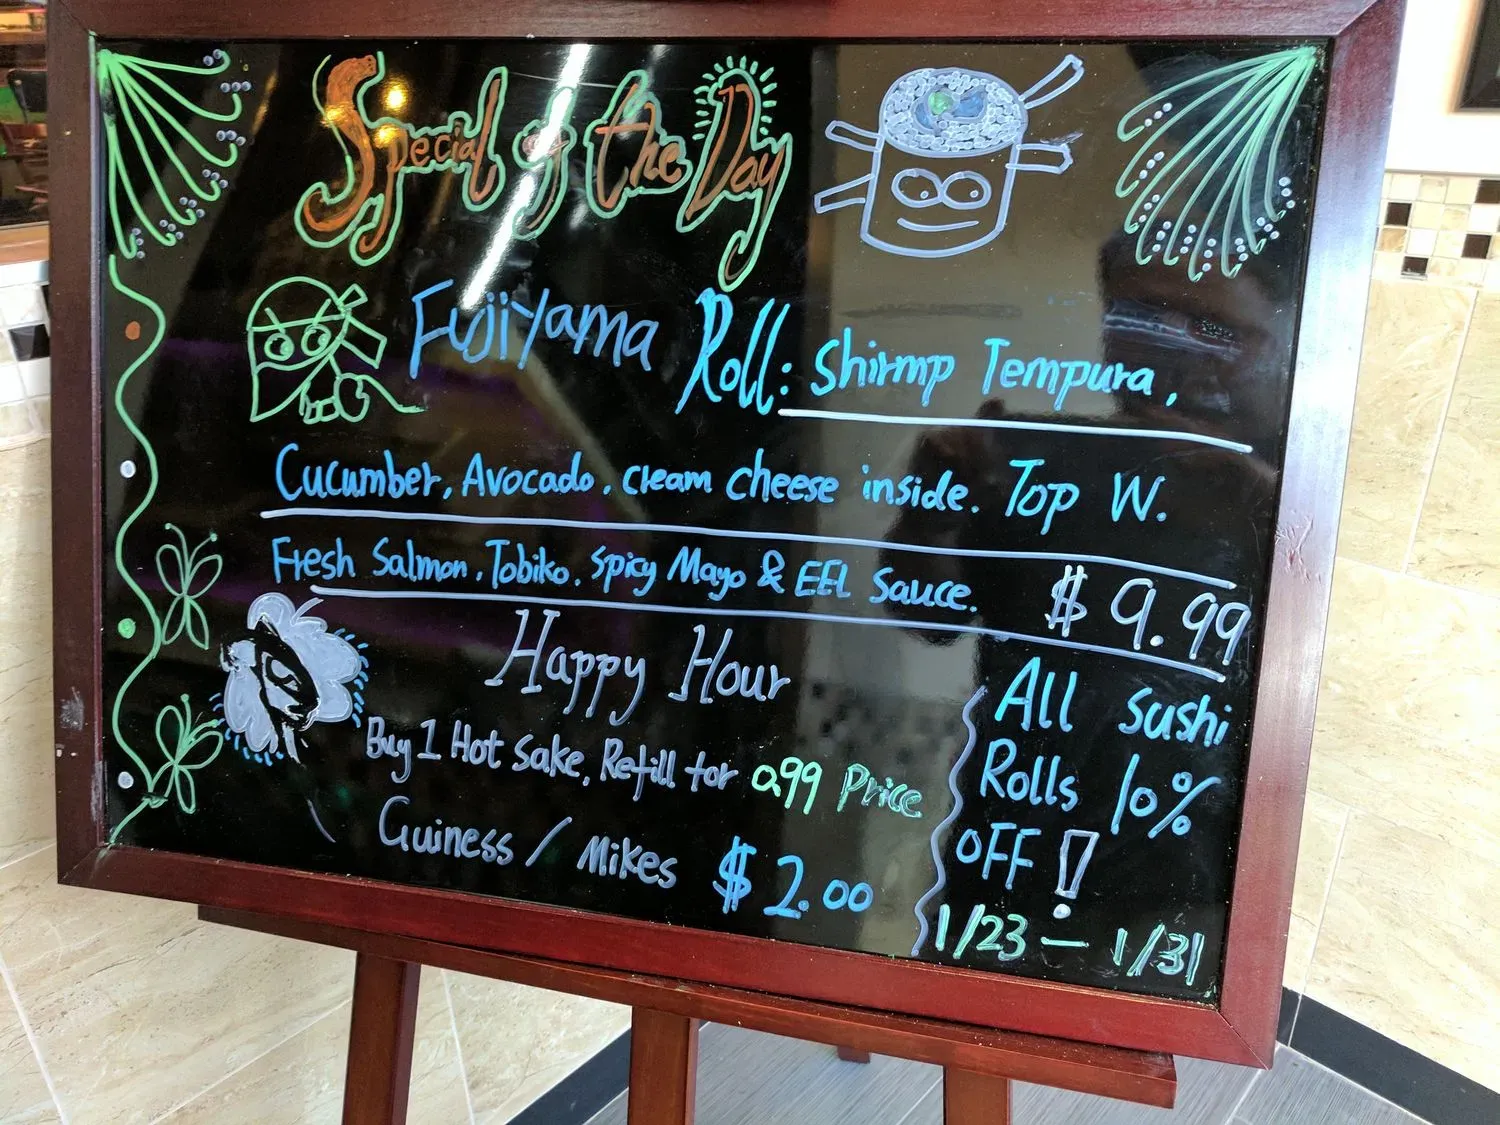 Special of the Day
Fujiyama Roll: Shirmp Tempura,
Cucumber, Avocado, cream cheese inside. Top W.
Fresh Salmon, Tobiko, Spicy Mayo & EEL Sauce. $ 9.99
Happy Hour
Buy 1 Hot Sake, Refill for 0.99 Price
Guiness / Mikes $ 2.00
All Sushi
Rolls 10%
OFF!
1/23 — 1/31